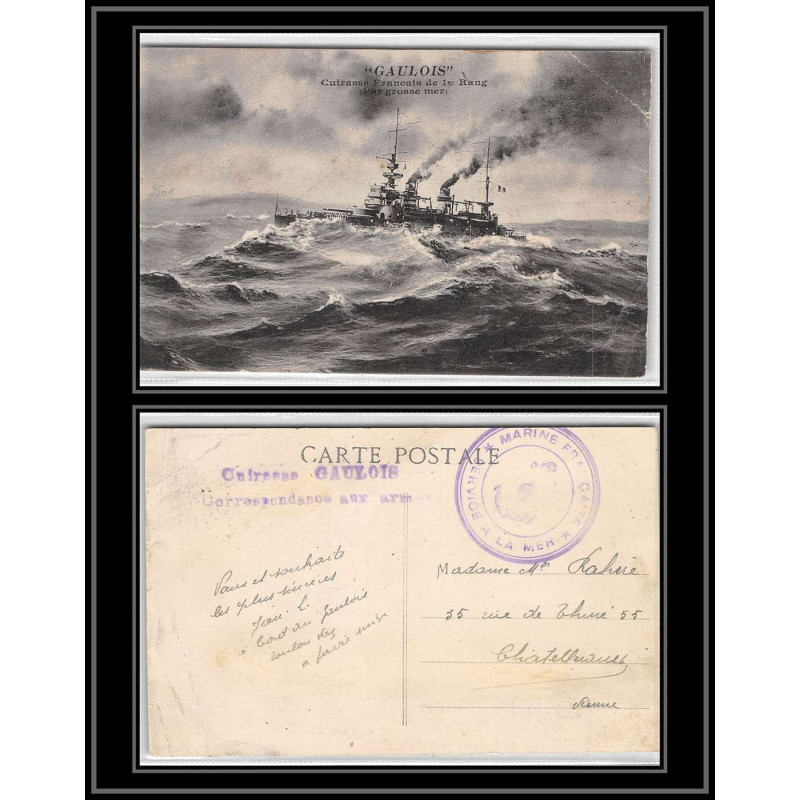 "GAULOIS"
Cuirassé Français de 1er Rang
(Par grosse mer)
CARTE POSTALE
Cuirasse GAULOIS
Correspondance aux arm
★ MARINE FRANÇAISE ★
SERVICE A LA MER
Vœux et souhaits
les plus sincères
Jean L.
à bord du Gaulois
Toulon
à faire suivre
Madame
35 rue de Thuré 55
Chatellerault
Vienne